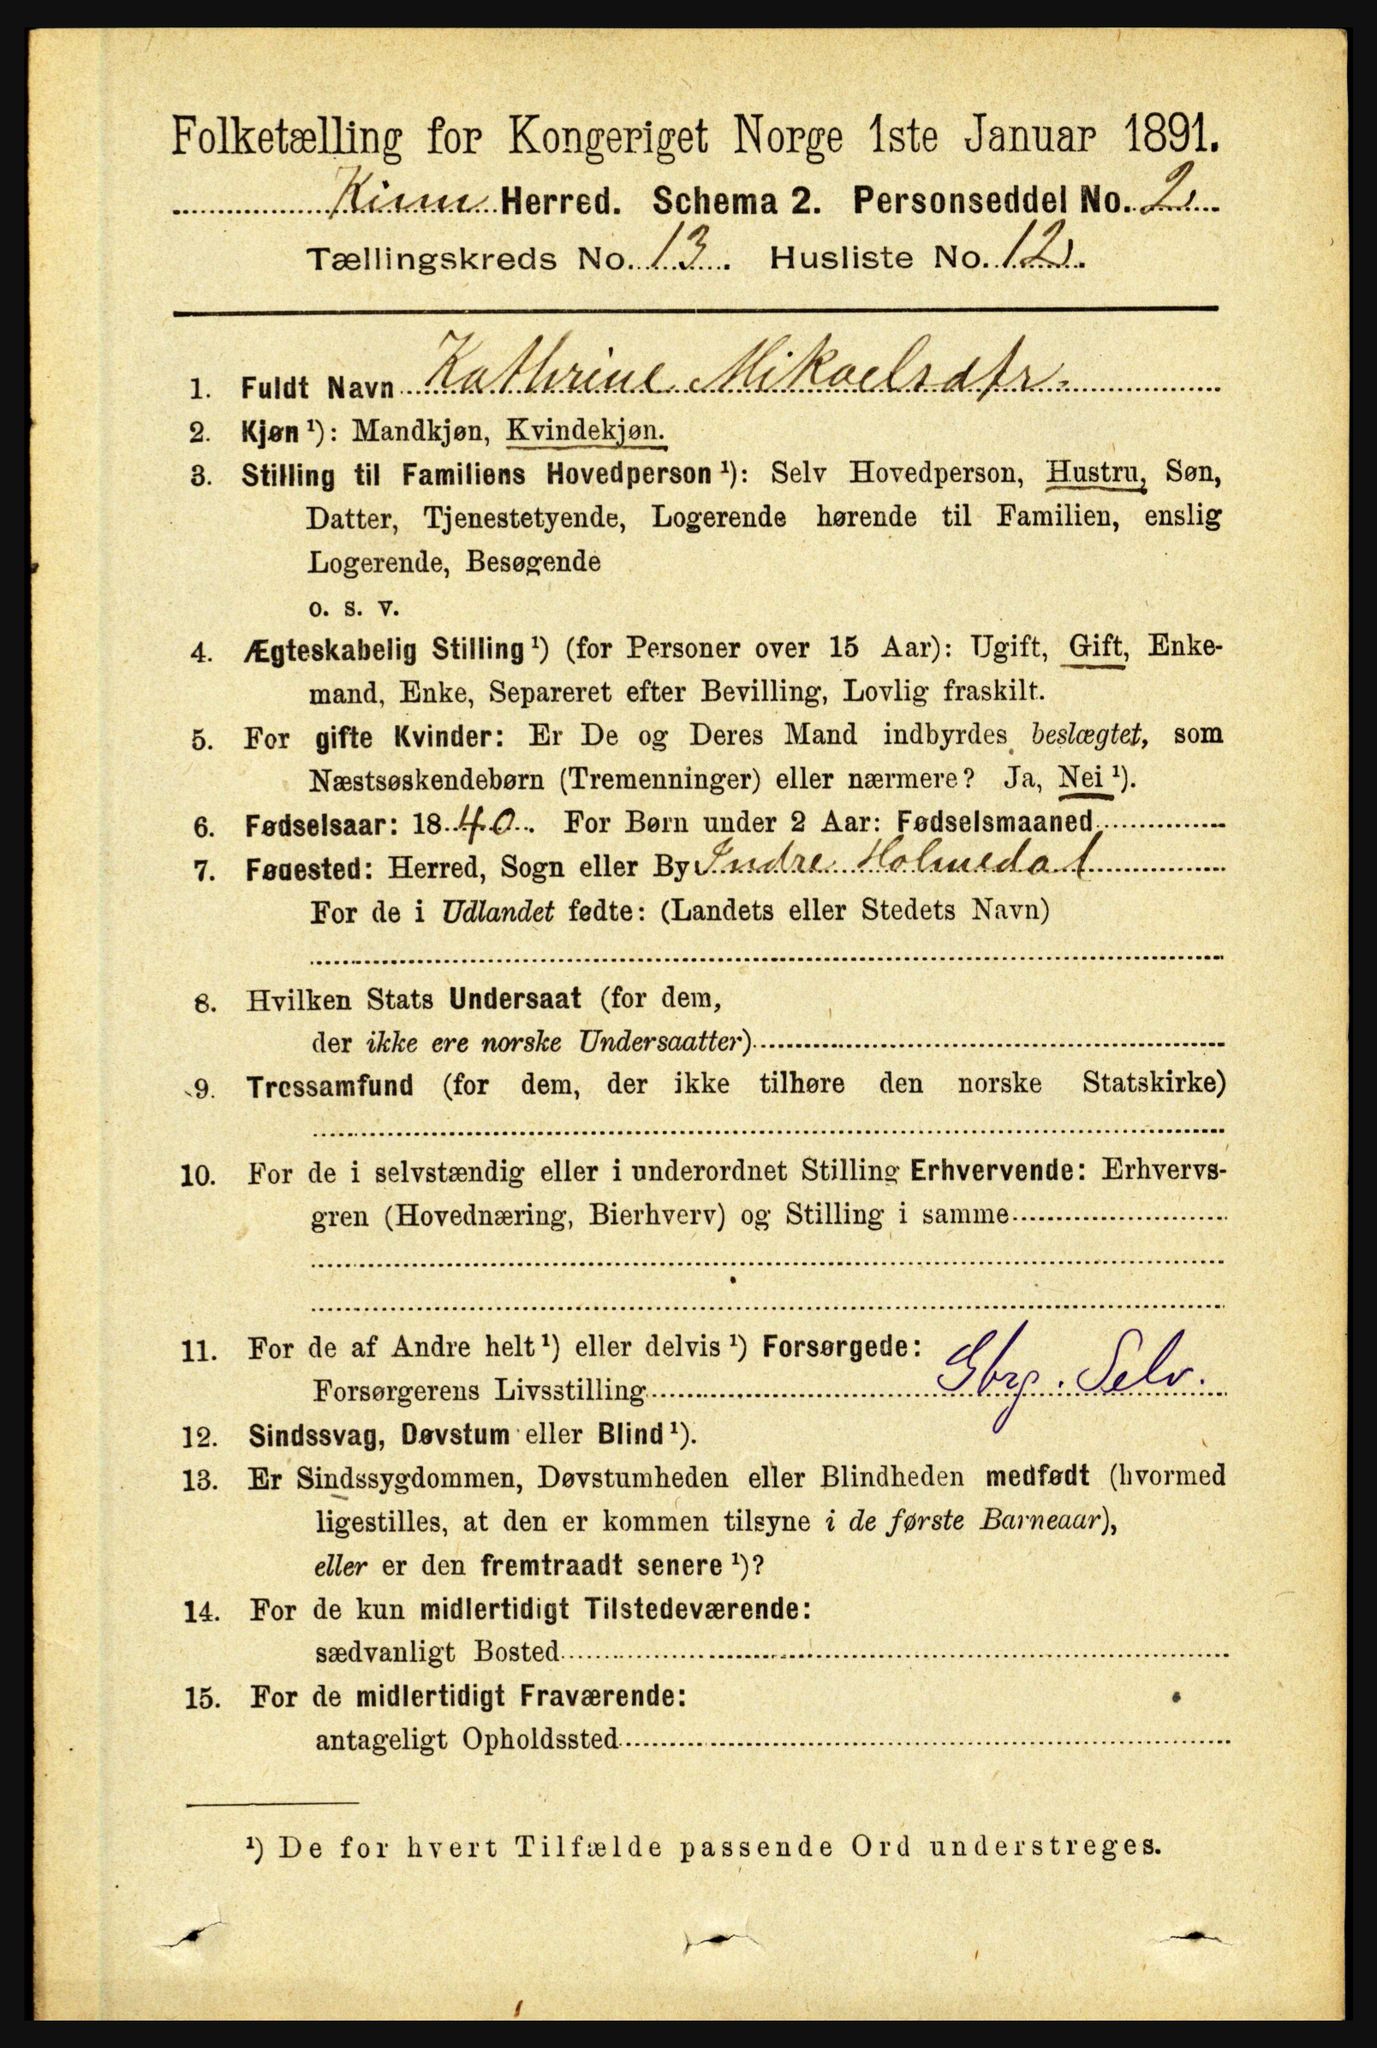 Folketælling for Kongeriget Norge 1ste Januar 1891.
Kinn Herred. Schema 2. Personseddel No. 2.
Tællingskreds No. 13. Husliste No. 12.
1. Fuldt Navn Kathrine Mikaelsdtr.
2. Kjøn ¹): Mandkjøn, Kvindekjøn.
3. Stilling til Familiens Hovedperson ¹): Selv Hovedperson, Hustru, Søn,
Datter, Tjenestetyende, Logerende hørende til Familien, enslig
Logerende, Besøgende
o. s. v.
4. Ægteskabelig Stilling ¹) (for Personer over 15 Aar): Ugift, Gift, Enke-
mand, Enke, Separeret efter Bevilling, Lovlig fraskilt.
5. For gifte Kvinder: Er De og Deres Mand indbyrdes beslægtet, som
Næstsøskendebørn (Tremenninger) eller nærmere? Ja, Nei ¹).
6. Fødselsaar: 1840. For Børn under 2 Aar: Fødselsmaaned
7. Føuested: Herred, Sogn eller By Indre Holmedal
For de i Udlandet fødte: (Landets eller Stedets Navn)
8. Hvilken Stats Undersaat (for dem,
der ikke ere norske Undersaatter)
9. Trossamfund (for dem, der ikke tilhøre den norske Statskirke)
10. For de i selvstændig eller i underordnet Stilling Erhvervende: Erhvervs-
gren (Hovednæring, Bierhverv) og Stilling i samme
11. For de af Andre helt ¹) eller delvis ¹) Forsørgede:
Forsørgerens Livsstilling Gbrg. Selv.
12. Sindssvag, Døvstum eller Blind ¹).
13. Er Sindssygdommen, Døvstumheden eller Blindheden medfødt (hvormed
ligestilles, at den er kommen tilsyne i de første Barneaar),
eller er den fremtraadt senere ¹)?
14. For de kun midlertidigt Tilstedeværende:
sædvanligt Bosted
15. For de midlertidigt Fraværende:
antageligt Opholdssted
¹) De for hvert Tilfælde passende Ord understreges.